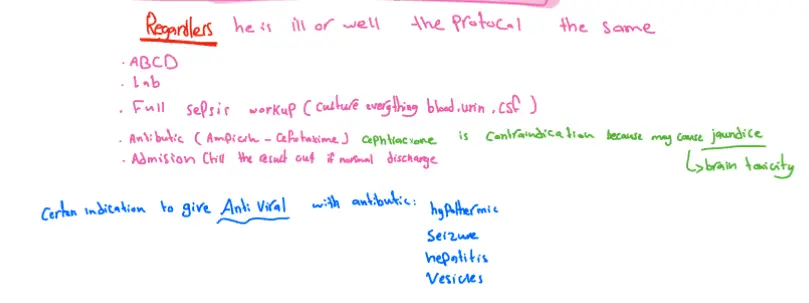 Regardlers he is ill or well the Protocal the same
. ABCD
. Lab
. Full sepsis workup (culture everything blood, urin, csf)
. Antibutic (Ampicilin - Cefotaxime) Cephtriaxone is Contraindication because may cause jaundice
↳ brain toxicity
. Admision (till the result out if normal discharge
Certen indication to give Anti Viral with antibutic:
hypothermic
Seizure
hepatitis
Vesicles